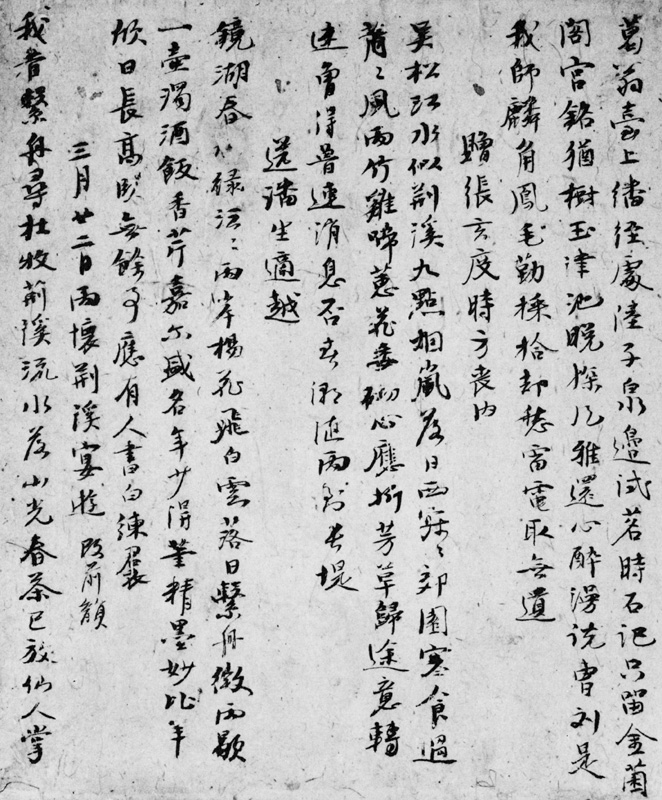 葛翁臺上繙經處陸子泉邊試茗時石記只留金菌
閣宮銘猶樹玉津池晚探風雅還心醉漫說曹劉是
我師麟角鳳毛勤採拾却愁雷電取無遺
贈張玄度時方喪內
吳松江水似荊溪九點烟嵐落日西寂寂郊園寒食過
蕭蕭風雨竹雞啼蕙花委砌心應折芳草歸途意轉
迷曾得連消息否春潮漲雨到長堤
送潘生適越
鏡湖春水綠沄沄兩岸楊花飛白雲落日繫舟微雨歇
一壺濁酒飯香芹嘉爾盛名年少得筆精墨妙比羊
欣日長高臥無餘事應有人書白練裙
三月廿二日雨懷荊溪宴遊改前韻
我昔繫舟尋杜牧荊溪流水落山光春茶已放仙人掌